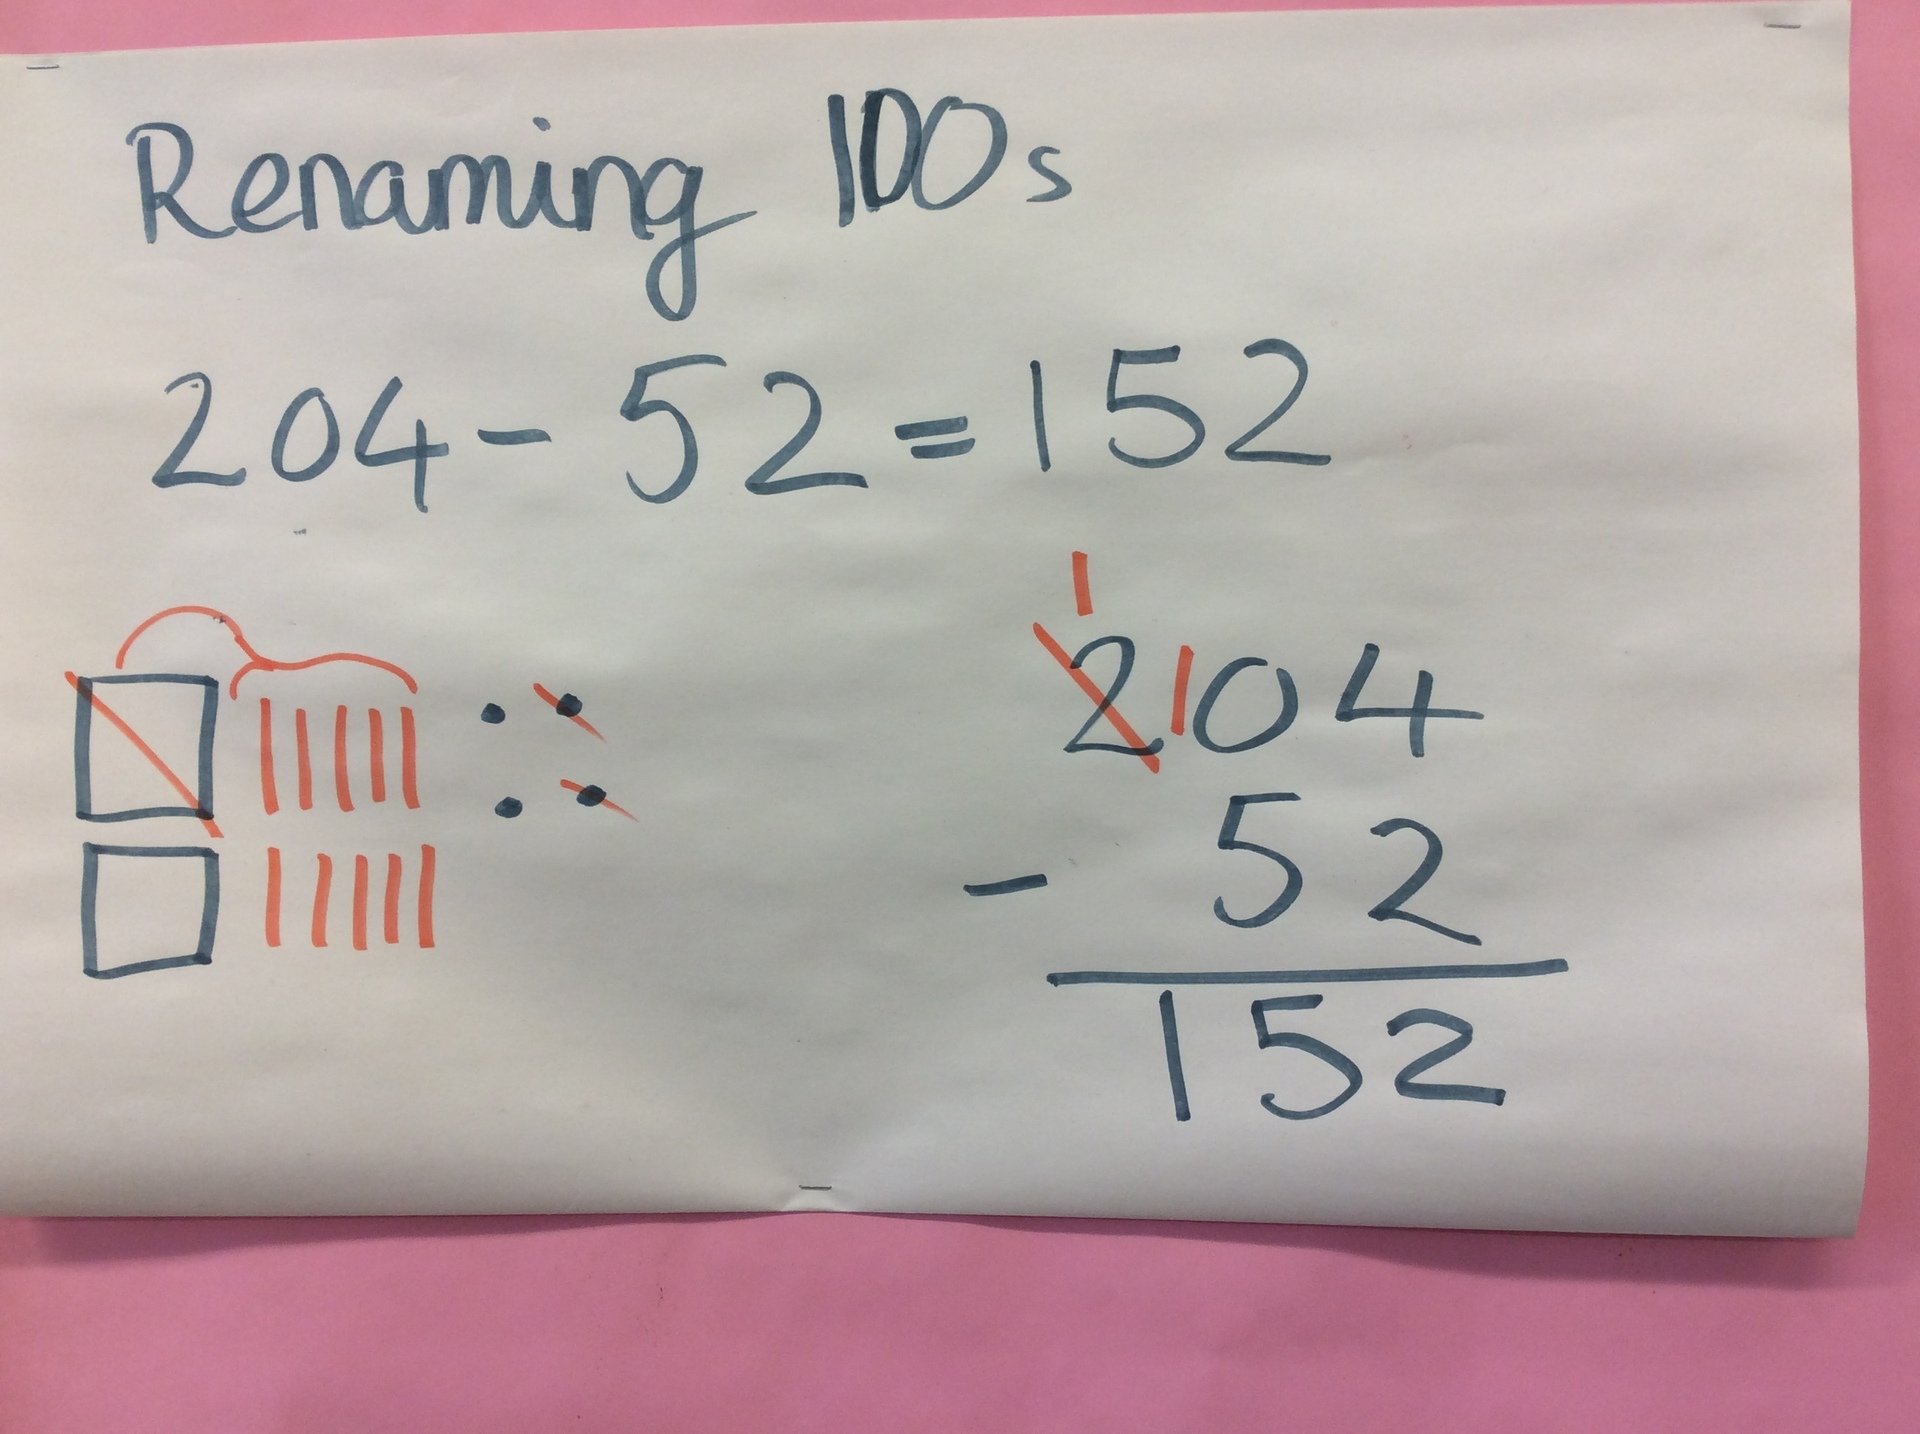 Renaming 100s
204 - 52 = 152
1
2104
- 52
152